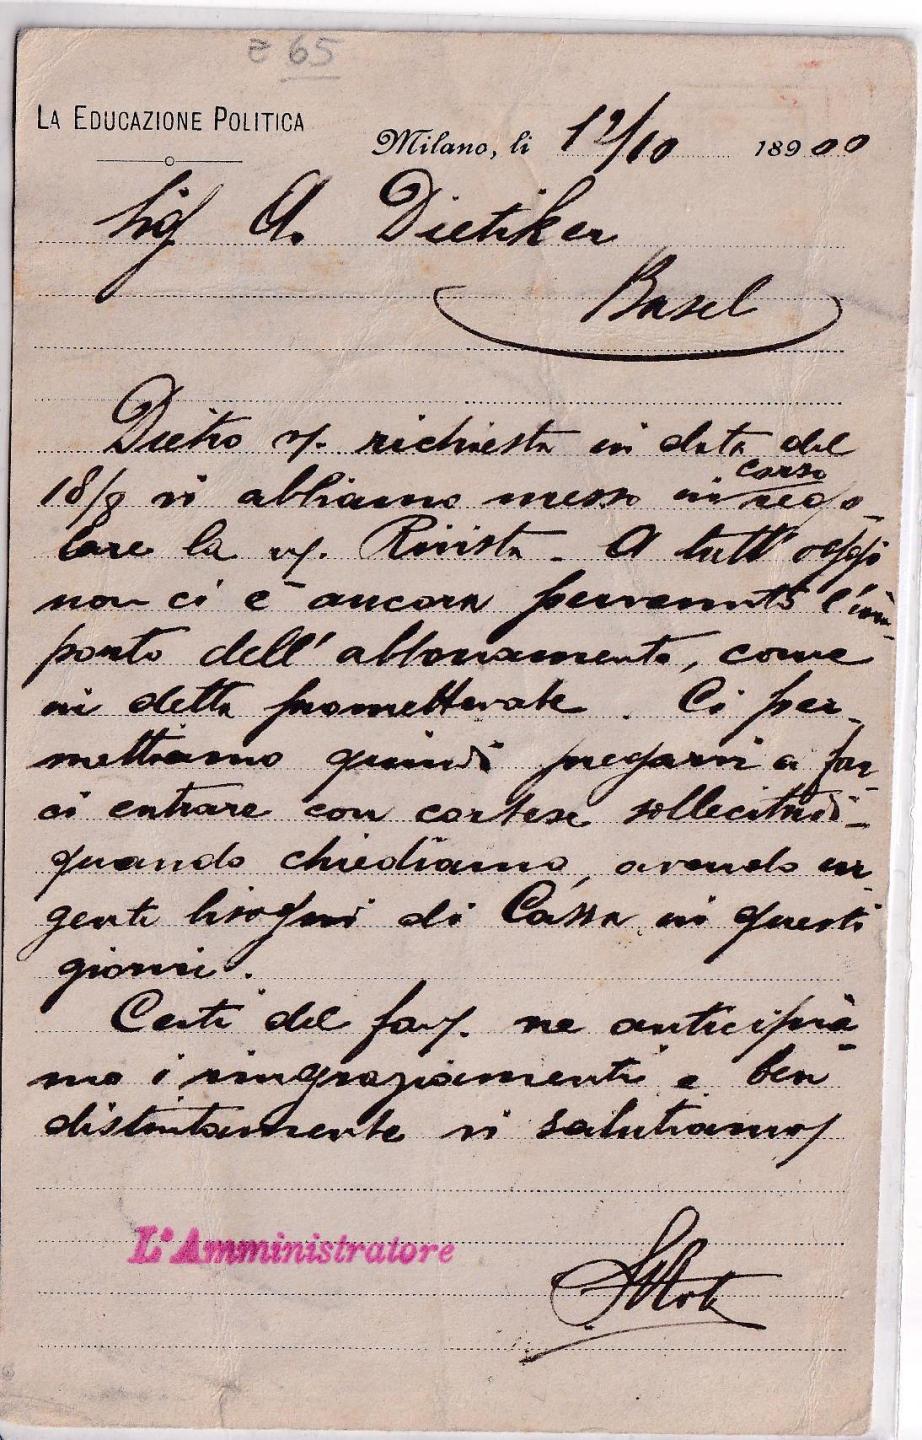 65
LA EDUCAZIONE POLITICA
Milano, li 12/10 18900
Sig A. Dietiker
Basel
Dietro v/. richiesta in data del
18/8 vi abbiamo messo in corso rego-
lare la n/. Rivista - A tutt' oggi
non ci è ancora pervenuto l'im-
porto dell' abbonamento, come
in detta promettevate. Ci per-
mettiamo quindi pregarvi a far-
ci entrare con cortese sollecitudi-
quando chiediamo, avendo ur-
genti bisogni di Cassa in questi
giorni.
Certi del fav/. ne anticipia-
mo i ringraziamenti e ben
distintamente vi salutiamo/
L'Amministratore